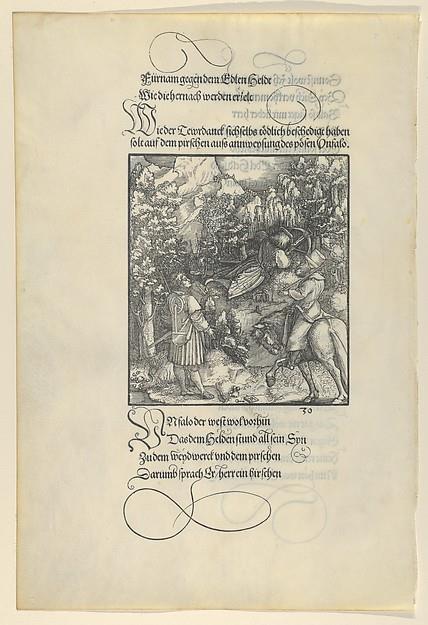 Fürnam gegen dem Edlen Helde
Wie die hernach werden erzelt
Wie der Tewrdanck sich selbs tödlich beschedigt haben
solt auf dem pirschen aus annweysung des pösen Unfalo.
30
UNfalo der west wol vorhin
Das dem Helden stund all sein Syn
Zu dem weydwerck vnd dem pirschen
Darumb sprach Er, herr ein hirschen